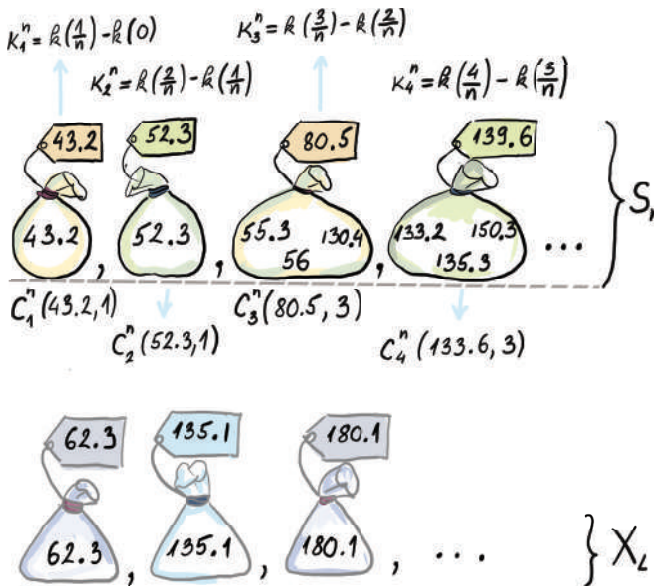 K₁ⁿ = k(1/n) - k(0)
K₃ⁿ = k(3/n) - k(2/n)
K₂ⁿ = k(2/n) - k(1/n)
K₄ⁿ = k(4/n) - k(3/n)
43.2 52.3 80.5 139.6
43.2 , 52.3 , 55.3 56 130.4 , 133.2 135.3 150.3 ...
C₁ⁿ(43.2,1) C₃ⁿ(80.5, 3)
C₂ⁿ(52.3,1) C₄ⁿ(133.6, 3)
62.3 135.1 180.1
62.3 , 135.1 , 180.1 , ... } X_L